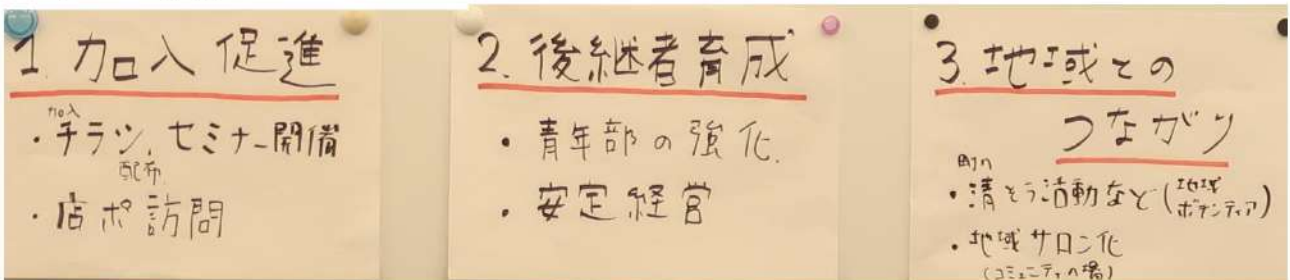 1. 加入促進
加入
・チラシ、セミナー開備
配布
・店ポ訪問
2. 後継者育成
・青年部の強化.
・安定経営
3. 地域との
つながり
町内
・清そう活動など(地域
ボランティア)
・地域サロン化
(コミュニティの場)